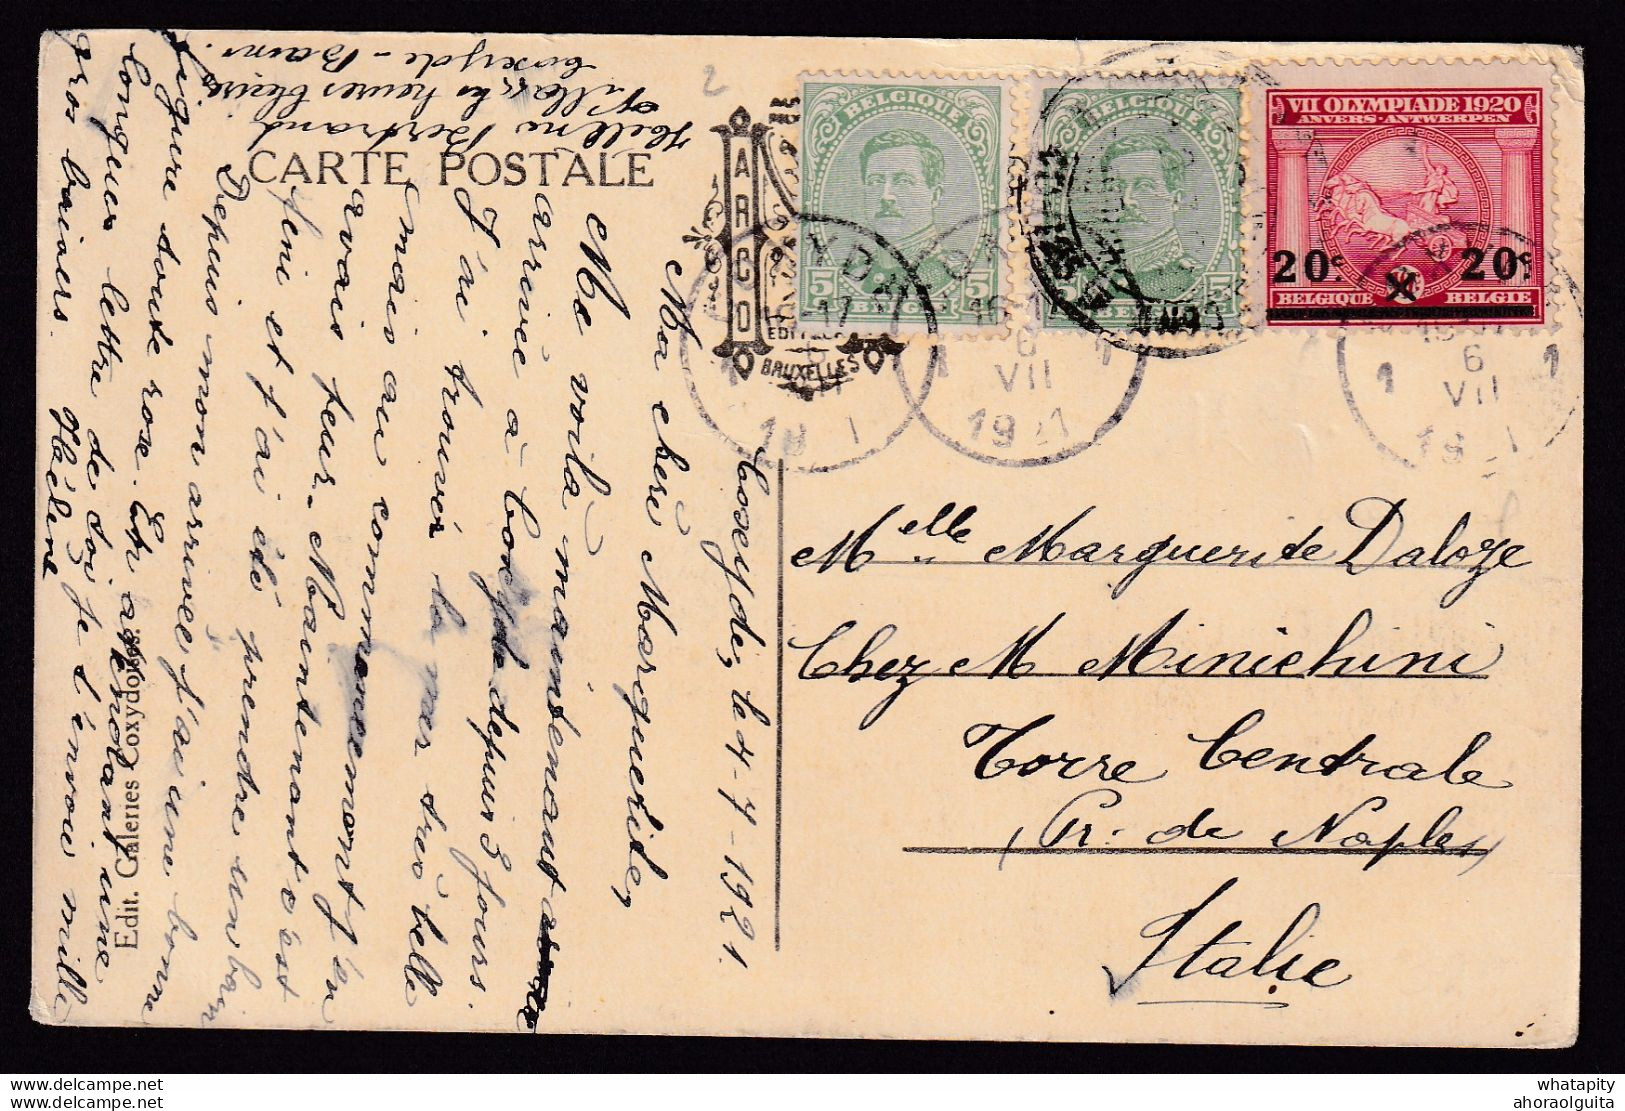 CARTE POSTALE
Coxyde, le 4-7-1921.
Ma chère Marguerite,
Me voilà maintenant
arrivée à Coxyde depuis 3 jours.
J'ai trouvé la mer très belle
mais au commencement j'en
avais peur. Maintenant c'est
fini et j'ai été prendre un bain
Depuis mon arrivée j'ai une bonne
figure toute rose. En attendant une
longue lettre de toi je t'envoie mille
gros baisers. Hélène
Hélène Bertrand
Villa "Les heures bleues"
Coxyde-Bains.
Edit. Galeries Coxydoises
ARGO
EDIT
BRUXELLES
2
BELGIQUE
5 5
BELGIË
BELGIQUE
5
VII OLYMPIADE 1920
ANVERS-ANTWERPEN
20c 20c
BELGIQUE BELGIE
1 6 1
VII
1921
1 6 1
VII
Melle Marguerite Daloze
Chez M Minichini
Torre Centrale
(Pr. de Naples)
Italie
whatapity
ahoraolguita
delcampe.net